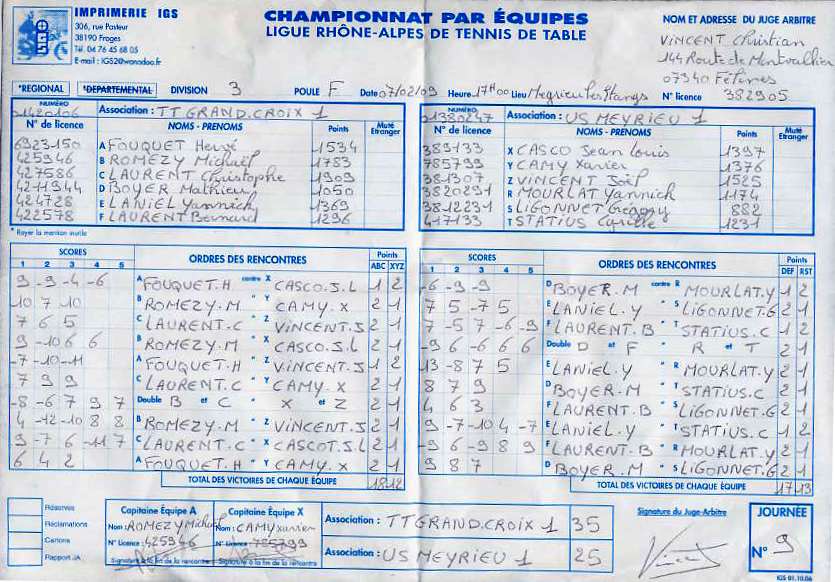 IMPRIMERIE IGS
306, rue Pasteur
38190 Froges
Tél. 04 76 45 68 05
E-mail : IGS2@wanadoo.fr
CHAMPIONNAT PAR ÉQUIPES
LIGUE RHÔNE-ALPES DE TENNIS DE TABLE
NOM ET ADRESSE DU JUGE ARBITRE
VINCENT Christian
144 Route de Montvallier
N° licence 382905
*RÉGIONAL *DÉPARTEMENTAL DIVISION 3 POULE F Date 07/02/09 Heure 17H00 Lieu
NUMÉRO 01420106 Association : TT GRAND.CROIX 1
N° de licence NOMS - PRENOMS Points Muté Etranger
6923150 A FOUQUET Hervé 1534
425946 B ROMEZY Michaël 1783
427586 C LAURENT Christophe 1909
4211944 D BOYER Mathieu 1050
424728 E LANIEL Yannick 1369
422578 F LAURENT Bernard 1296
* Rayer la mention inutile
NUMÉRO 01380247 Association : US MEYRIEU 1
N° de licence NOMS - PRENOMS Points Muté Etranger
389133 X CASCO Jean Louis 1397
785799 Y CAMY Xavier 1376
381307 Z VINCENT Joël 1525
3820291 R MOURLAT Yannick 1174
3812231 S LIGONNET Grégory 882
417133 T STATIUS 1231
SCORES ORDRES DES RENCONTRES Points
1 2 3 4 5 ABC XYZ
9 -9 -4 -6 A FOUQUET.H contre X CASCO.J.L 1 2
10 7 10 B ROMEZY.M " Y CAMY.X 2 1
7 6 5 C LAURENT.C " Z VINCENT.J 2 1
9 -10 6 6 B ROMEZY.M " X CASCO.J.L 2 1
-7 -10 -11 A FOUQUET.H " Z VINCENT.J 1 2
7 9 9 C LAURENT.C " Y CAMY.X 2 1
-8 -6 7 9 7 Double B et C " X et Z 2 1
4 -12 -10 8 8 B ROMEZY.M " Z VINCENT.J 2 1
9 -7 6 -11 7 C LAURENT.C " X CASCOT.J.L 2 1
6 4 2 A FOUQUET.H " Y CAMY.X 2 1
TOTAL DES VICTOIRES DE CHAQUE ÉQUIPE 18 12
SCORES ORDRES DES RENCONTRES Points
1 2 3 4 5 DEF RST
-6 -9 -9 D BOYER.M contre R MOURLAT.Y 1 2
7 5 -7 5 E LANIEL.Y " S LIGONNET.G 2 1
7 -5 7 -6 -9 F LAURENT.B " T STATIUS.C 1 2
-9 6 -6 6 6 Double D et F " R et T 2 1
13 -8 7 5 E LANIEL.Y " R MOURLAT.Y 2 1
8 7 9 D BOYER.M " T STATIUS.C 2 1
4 6 3 F LAURENT.B " S LIGONNET.G 2 1
9 -7 -10 4 -7 E LANIEL.Y " T STATIUS.C 1 2
-9 6 -9 8 9 F LAURENT.B " R MOURLAT.Y 2 1
9 8 7 D BOYER.M " S LIGONNET.G 2 1
TOTAL DES VICTOIRES DE CHAQUE ÉQUIPE 17 13
Réserves
Réclamations
Cartons
Rapport JA
Capitaine Équipe A
Nom : ROMEZY Michael
N° Licence : 425946
Signature à la fin de la rencontre
Capitaine Équipe X
Nom : CAMY xavier
N° Licence : 785799
Signature à la fin de la rencontre
Association : TT GRAND.CROIX 1 35
Association : US MEYRIEU 1 25
Signature du Juge-Arbitre
Vincent
JOURNÉE
N° 9
IGS 01.10.06